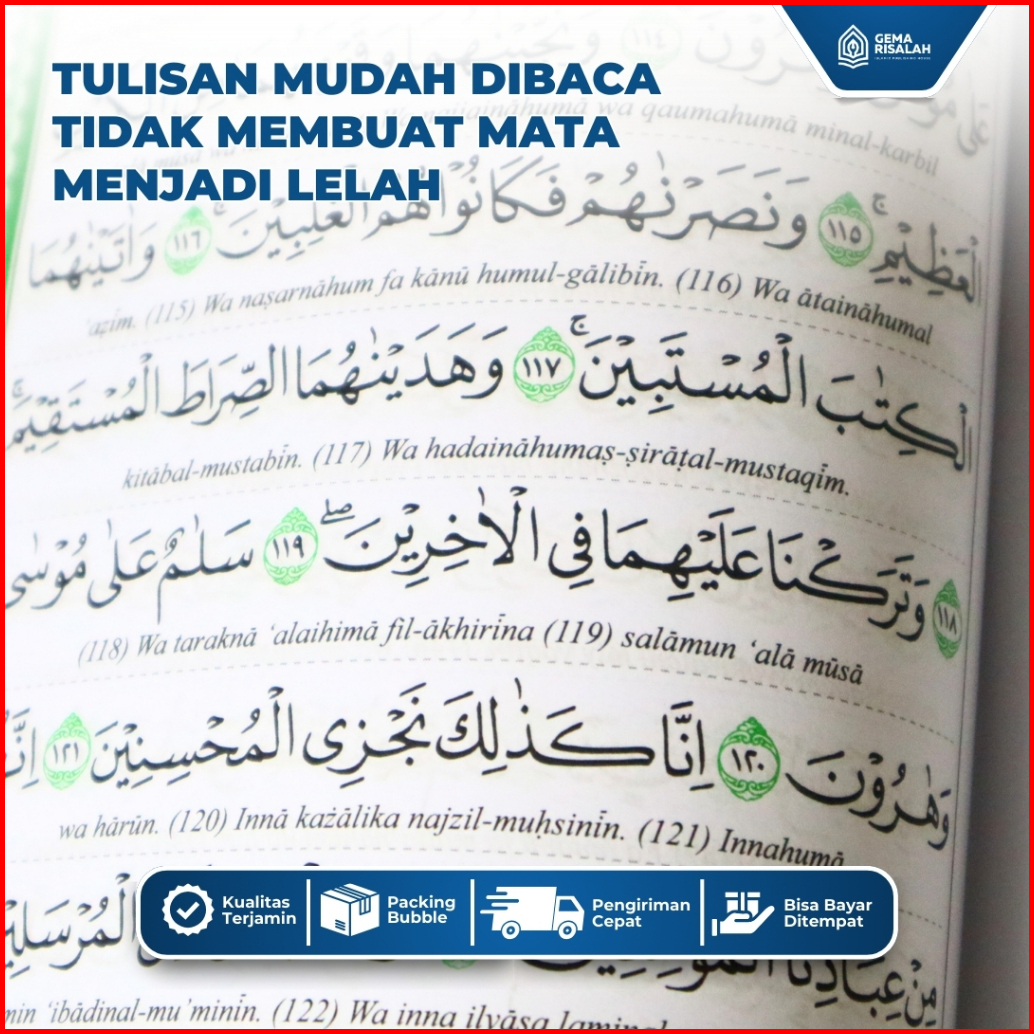 GEMA
RISALAH
TULISAN MUDAH DIBACA
TIDAK MEMBUAT MATA
MENJADI LELAH
wa qaumahumā minal-karbil
الْعَظِيْمِۚ ١١٥ وَنَصَرْنٰهُمْ فَكَانُوْا هُمُ الْغٰلِبِيْنَۚ ١١٦ وَاٰتَيْنٰهُمَا
‘aẓīm. (115) Wa naṣarnāhum fa kānū humul-gālibīn. (116) Wa ātaināhumal
الْكِتٰبَ الْمُسْتَبِيْنَۚ ١١٧ وَهَدَيْنٰهُمَا الصِّرَاطَ الْمُسْتَقِيْمَۚ
kitābal-mustabīn. (117) Wa hadaināhumaṣ-ṣirāṭal-mustaqīm.
١١٨ وَتَرَكْنَا عَلَيْهِمَا فِى الْاٰخِرِيْنَۖ ١١٩ سَلٰمٌ عَلٰى مُوْسٰى
(118) Wa taraknā ‘alaihimā fil-ākhirīna (119) salāmun ‘alā mūsā
وَهٰرُوْنَ ١٢٠ اِنَّا كَذٰلِكَ نَجْزِى الْمُحْسِنِيْنَ ١٢١
wa hārūn. (120) Innā każālika najzil-muḥsinīn. (121) Innahumā
مِنْ عِبَادِنَا الْمُؤْمِنِيْنَ
min ‘ibādinal-mu’minīn. (122) Wa inna ilyāsa
Kualitas
Terjamin
Packing
Bubble
Pengiriman
Cepat
Bisa Bayar
Ditempat